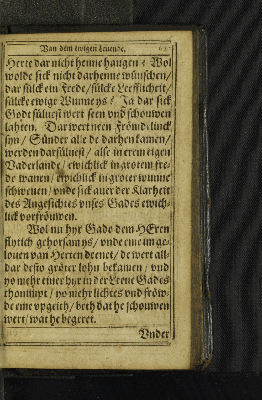 Van dem ewigen Leuende.
Herte dar nicht henne hangen? Wol
wolde sick nicht darhenne wünschen/
dar sülck ein Frede/ sülcke Leefflicheit/
sülcke ewige Wunne ys? Ja dar sick
Godt süluest wert seen vnd schouwen
lahten. Dar wert neen Frömdelinck
syn/ Sünder alle de darhen kamen/
werden darsüluest/ alse in erem eigen
Vaderlande/ ewichlick in grotem fre-
de wanen/ ewichlick in groter wunne
schweuen/ vnde sick auer der Klarheit
des Angesichtes vnses Gades ewich-
lick vorfröuwen.
Wol nu hyr Gade dem HEren
flytich gehorsam ys/ vnde eme im ge-
louen van Herten denet/ de wert all-
dar desto gröter lohn bekamen/ vnd
yo mehr einer hyr in der Leue Gades
thonimpt/ yo mehr lichtes vnd fröw-
de eme vpgeith/ beth dat he schouwen
wert/ wat he begeret.
Vnder